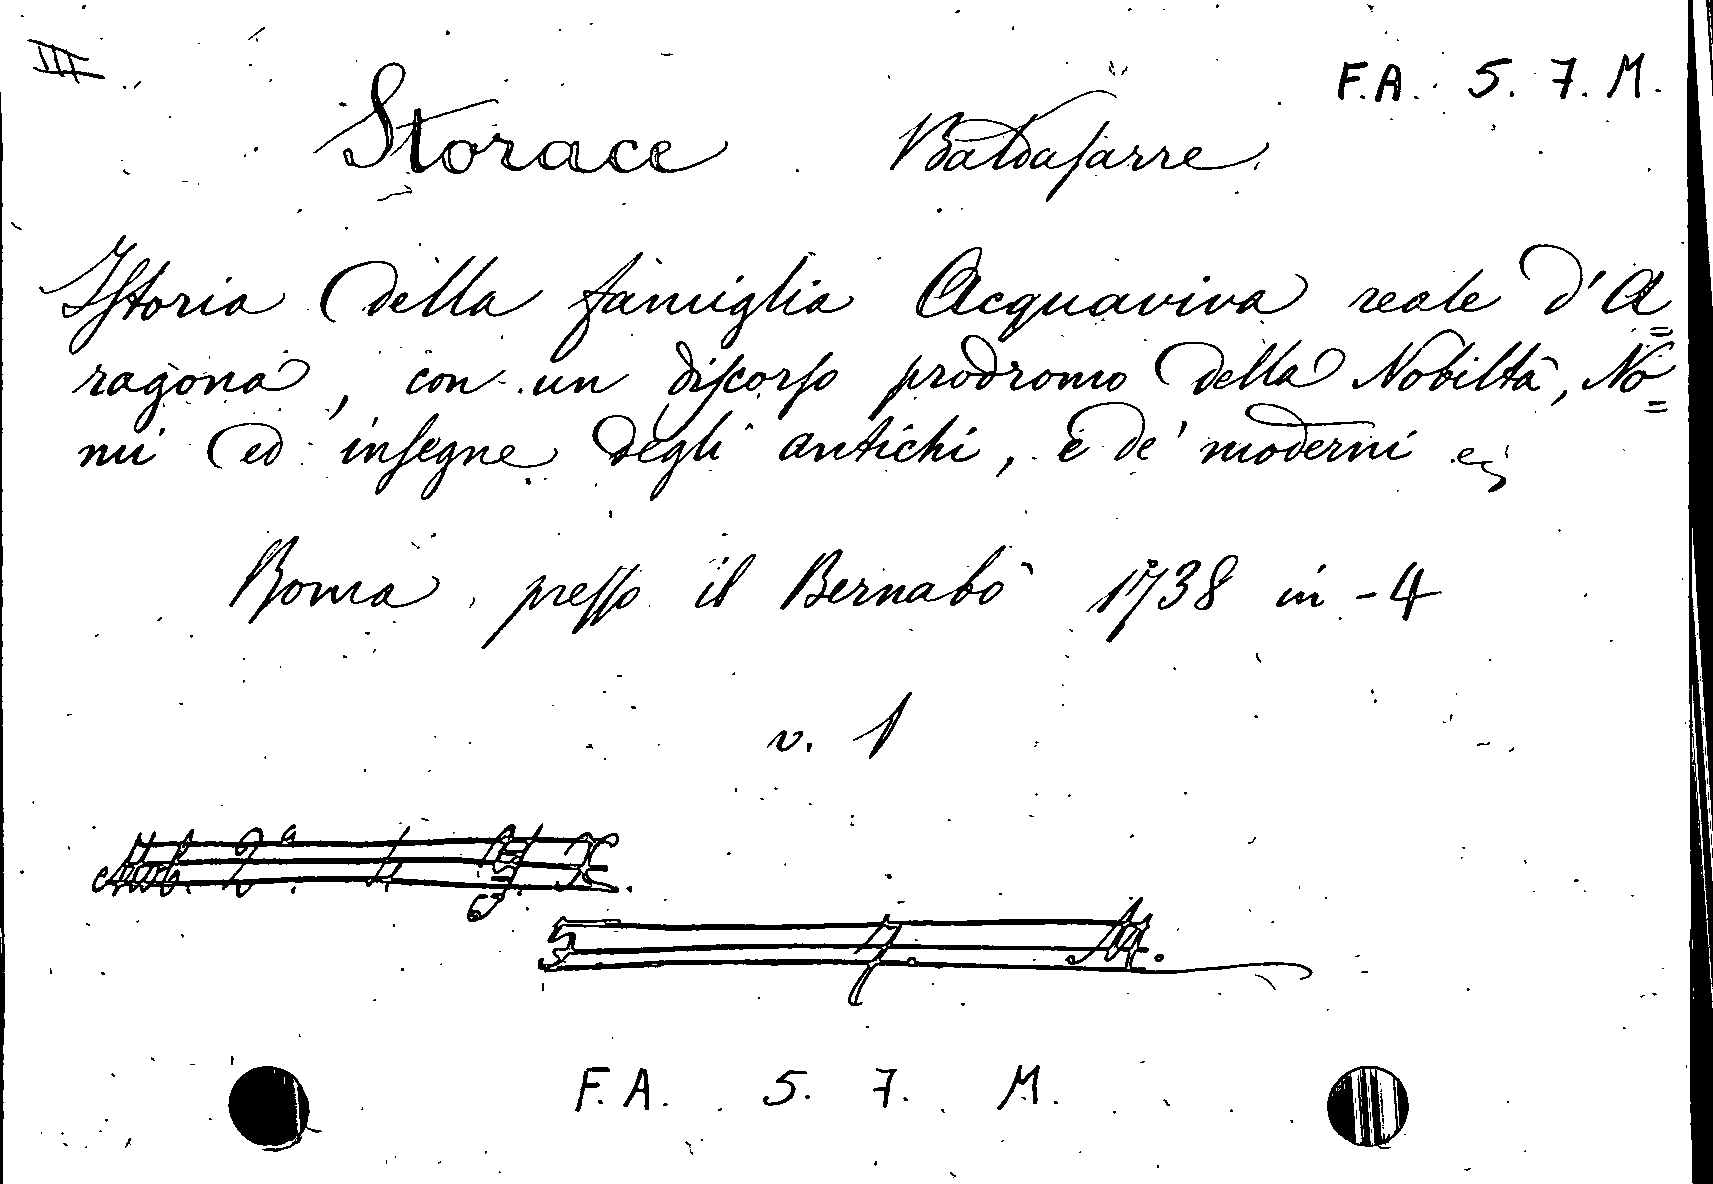 III
F.A. 5. 7. M.
Storace Baldasarre
Istoria della famiglia Acquaviva reale d'A=
ragona, con un discorso prodromo della Nobiltà, No=
mi ed insegne degli antichi, e de' moderni
Roma presso il Bernabò 1738 in-4
v. 1
5. 7. M.
F.A. 5. 7. M.